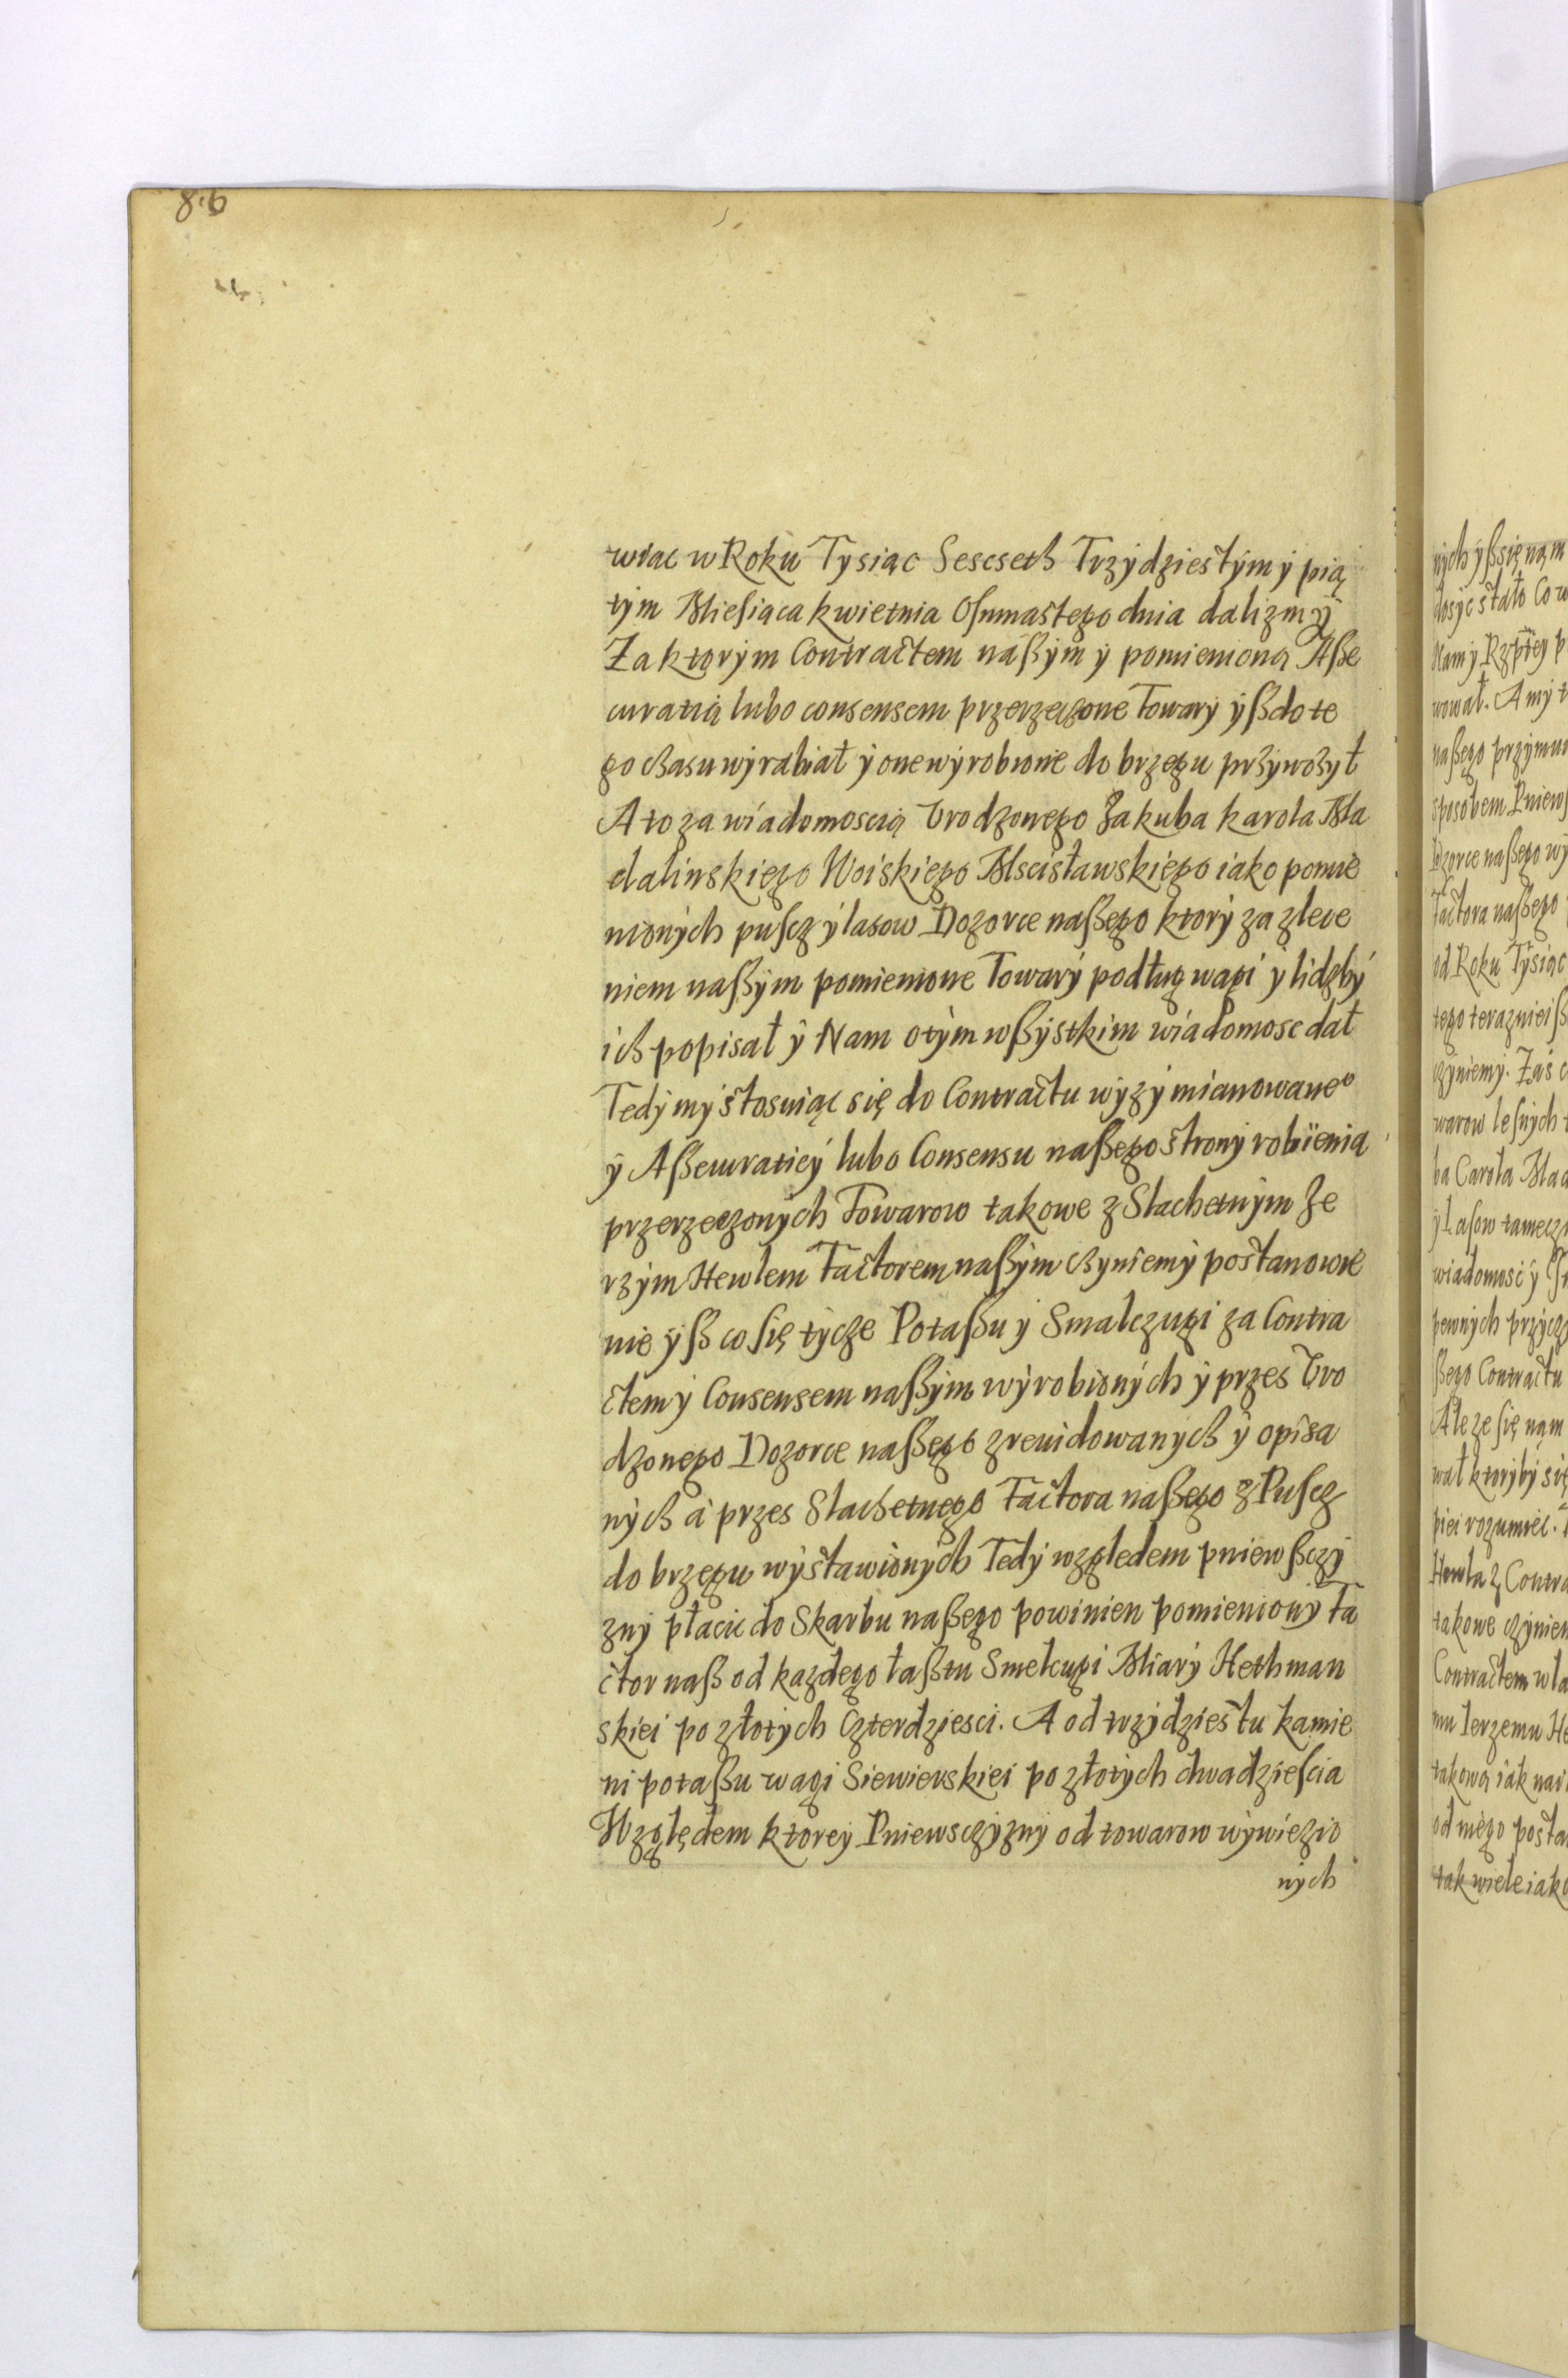 8.6
wiac w Roku Tysiąc Sescseth Trzÿdziestÿm ÿ pią
tÿm Miesiąca kwietnia Osnnastego dnia dalizmÿ
Za ktorÿm Contractem naßÿm ÿ pomieniona Aße
curatią lubo consensem przerzeczone Towarÿ ÿß do te
go czasu wÿrabiał ÿ one wÿrobione do brzegu przÿwozył
A to za wiadomoscią Vrodzonego Jakuba karola Ma
dalinskiego Woiskiego Mscisławskiego iako pomie
nionÿch puscz ÿ lasow Dozorce naßego ktorÿ za zlece
niem naßÿm pomienione Towarÿ podług wagi ÿ lidzbÿ
ich popisał ÿ Nam o tÿm wßÿstkim wiadomosc dał
Tedÿ mÿ stosuiąc się do Contractu wÿzÿ mianowaneo
ÿ Aßecuratieÿ lubo Consensu naßego stronÿ robienia
przerzeczonÿch Towarow takowe z Slachetnÿm Je
rzÿm Hewlem Factorem naßÿm czÿniemÿ postanowie
nie ÿß co się tÿcze Potaßu ÿ Smalczugi za Contra
ctem ÿ Consensem naßÿm wÿrobionÿch ÿ przes Vro
dzonego Dozorce naßego zrewidowanÿch ÿ opisa
nÿch a przes Slachetnego Factora naßego z Puscz
do brzegu wÿstawionÿch Tedÿ względem pniewßczÿ
znÿ płacic do Skarbu naßego powinien pomienionÿ Fa
ctor naß od kazdego łaßtu Smelcugi Miarÿ Hethman
skiei po złotÿch Czterdziesci. A od trzÿdziestu kamie
ni potaßu wagi Siewierskiei po złotÿch dwadziescia
Względem ktoreÿ Pniewsczÿznÿ od towarow wÿwiezio
nÿch
nÿch ÿß się nam
dosÿc stało Co w
Nam ÿ Rzpteÿ p
wował. A mÿ t
naßego przÿmu
sposobem Pniews
Dozorce naßego wÿ
Factora naßego
od Roku Tÿsiąc
tego teraznieiß
czÿniemÿ. Zas c
warow lesnÿch
ba Carola Mad
ÿ Lasow tamecz
wiadomosc ÿ
pewnÿch przÿcz
ßego Contractu
Ale ze się nam
wał ktorÿbÿ się
piei rozumiec.
Hewla z Contra
takowe czÿniem
Contractem wła
mu Jerzemu He
takową iak nai
od niego posta
tak wiele iako